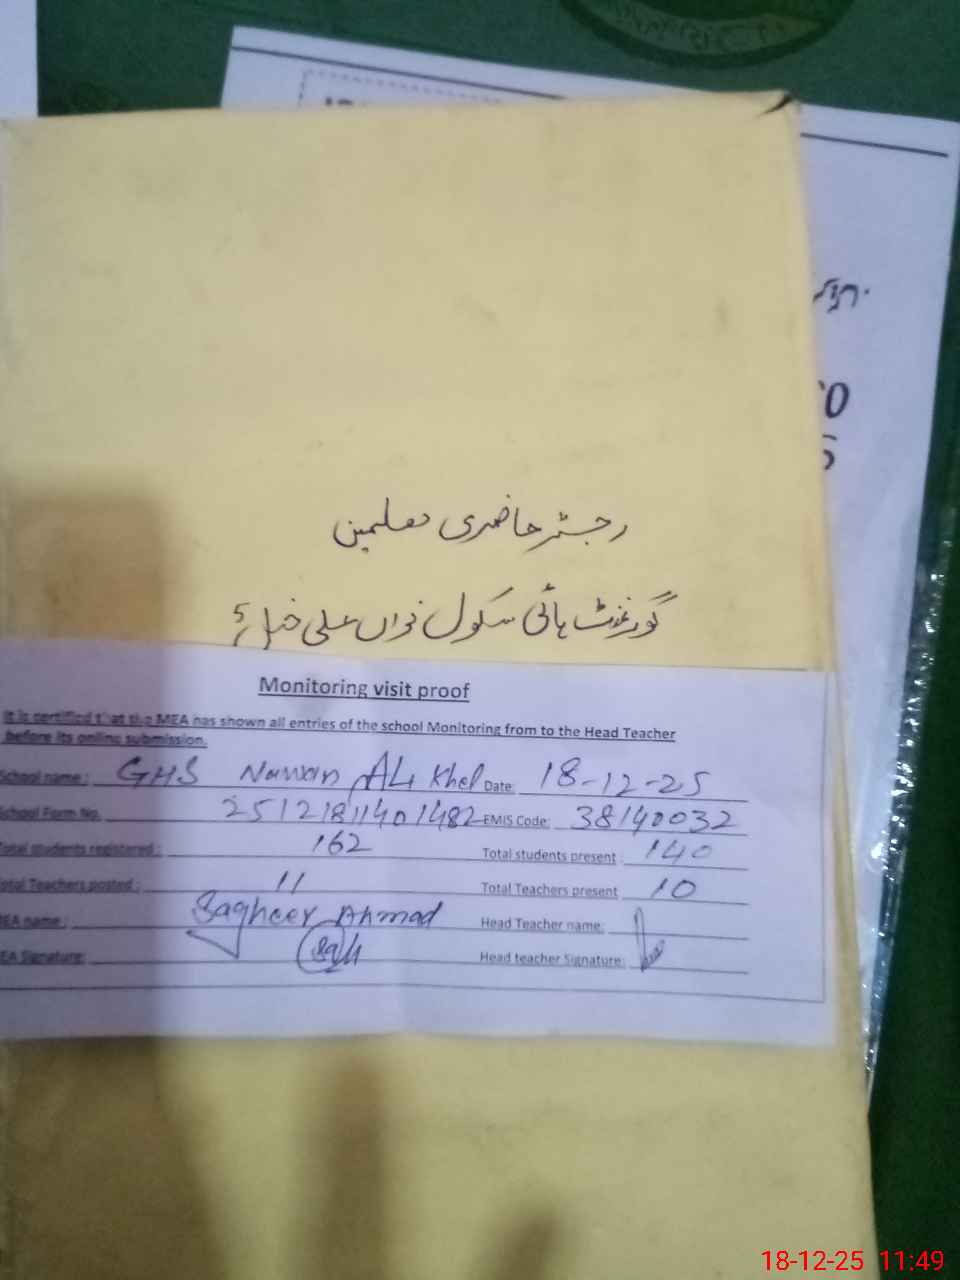 رجسٹر حاضری معلمین
گورنمنٹ ہائی سکول نواں علی خیل
Monitoring visit proof
It is certified that the MEA has shown all entries of the school Monitoring from to the Head Teacher
before its online submission.
School name: GHS Nawan Ali Khel Date: 18-12-25
School Form No. 25121811401482 EMIS Code: 38140032
Total students registered: 162 Total students present: 140
Total Teachers posted: 11 Total Teachers present 10
MEA name: Sagheer Ahmad Head Teacher name:
EA Signature: Head teacher Signature:
18-12-25 11:49